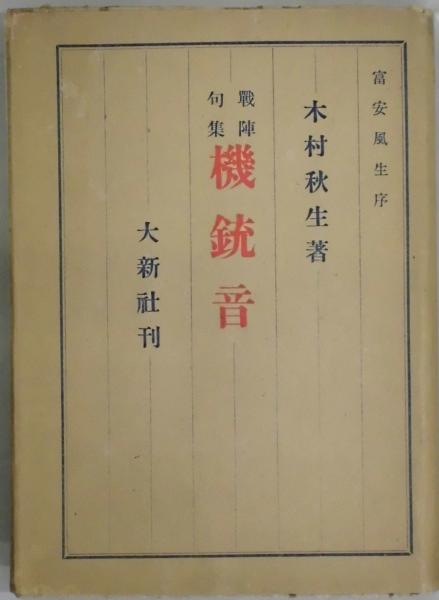 富安風生序
木村秋生著
戰陣
句集
機銃音
大新社刊